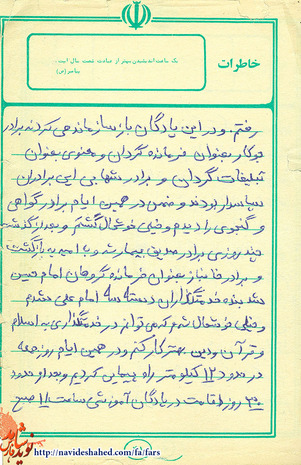 خاطرات
یک ساعت اندیشیدن بهتر از عبادت شصت سال است...
پیامبر (ص)
رفتم. و در این پادگان باز سازماندهی کردند برادر
جوکار بعنوان فرمانده گردان و معنوی بعنوان
تبلیغات گردان و برادر
سپاسدار بودند و ضمن در همین ایام برادر گواهی
و گنجوی را دیدم و خیلی خوشحال گشتم و بعد از گذشت
چند روزی برادر صدیق بیمار شد و با امید به بازگشت
و برادر خانباز بعنوان فرمانده گروهان امام حسین
شد بنده خدمتگذاران دسته سه امام علی شدم
و خیلی خوشحال شدم که می توانم در خدمتگذاری به اسلام
و قرآن و دین بهتر کار کنم و در همین ایام روز جمعه
در حدود ۱۲ کیلومتر راه پیمایی کردیم و بعد از حدود
روز اقامت در پادگان آموزشی ساعت ۸ صبح
نوید شاهد فارس
http://navideshahed.com/fa/fars